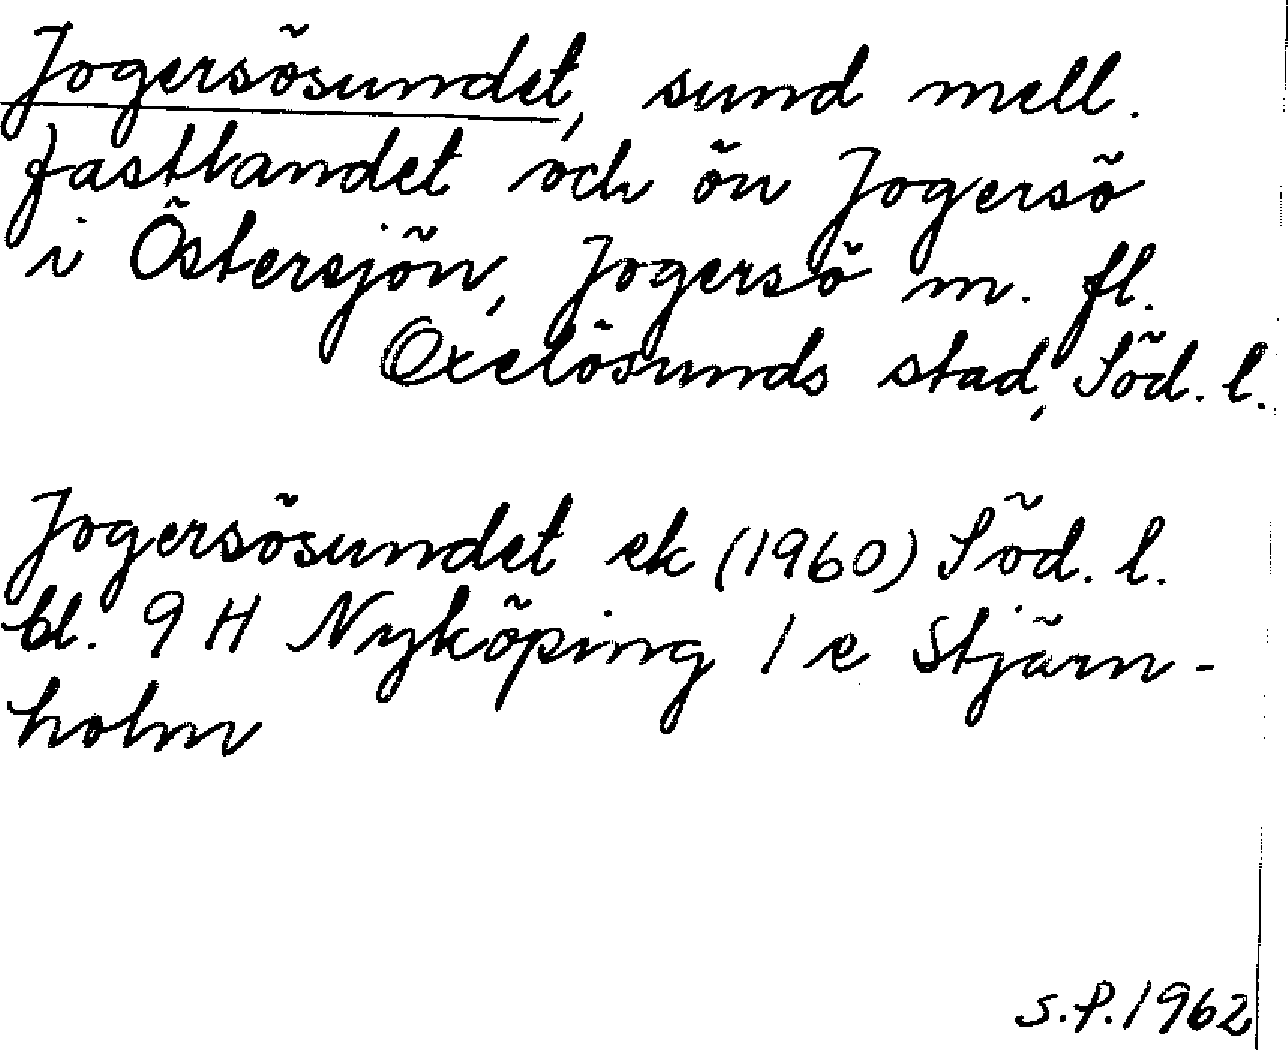 Jogersösundet, sund mell.
fastlandet och ön Jogersö
i Östersjön, Jogersö m. fl.
Oxelösunds stad, Söd. l.
Jogersösundet ek (1960) Söd. l.
bl. 9 H Nyköping 1 e Stjärn-
holm
S.P. 1962